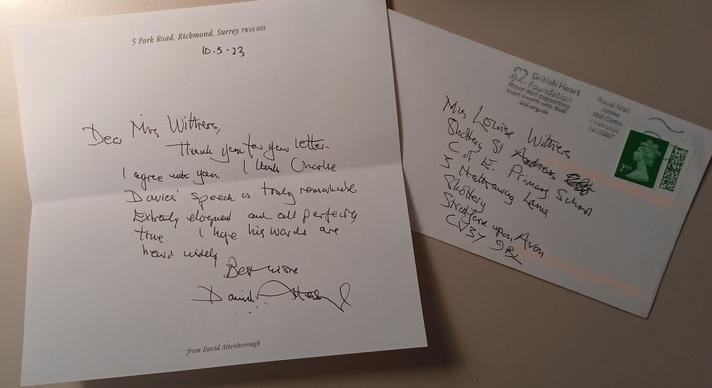 5 Park Road, Richmond, Surrey TW10 6NS
10.5.23
Dear Mrs Withers,
Thank you for your letter.
I agree with you. I think Charlie
Davies' speech is truly remarkable
Extremely eloquent and all perfectly
true. I hope his words are
heard widely
Best wishes
David Attenborough
from David Attenborough
British Heart
Foundation
Royal Mail
Mrs Louise Withers
Shottery St Andrews
C of E. Primary School
Hathaway Lane
Shottery
Stratford upon Avon
CV37 9BL
2ND